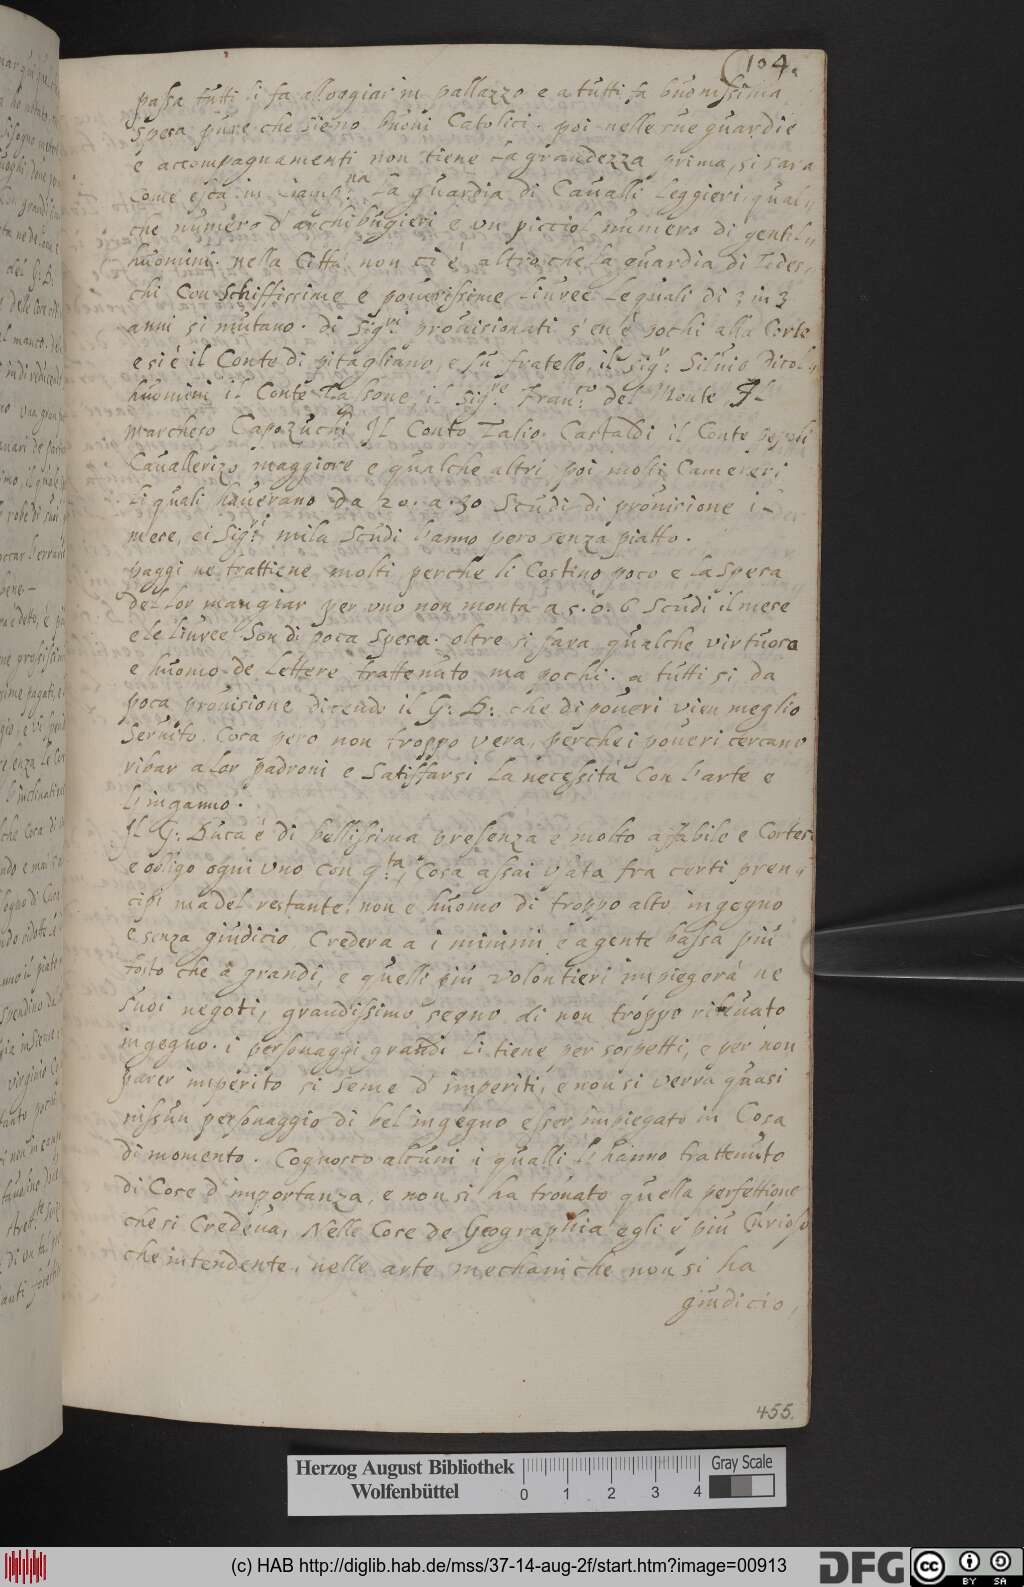 104.
passa tutti li fa alloggiar in pallazzo e a tutti fa buonissima
spesa pure che sieno buoni Catolici. poi nelle sue guardie
e accompagnamenti non tiene la grandezza prima, si sara
come esca in Campna la guardia di Cavalli leggieri, qual-
che numero d'archibugieri e un picciol numero di gentil-
huomini. nella Città non ci è altro che la guardia di Tedes-
chi con schiffissime e poverissime livree le quali di 3 in 3
anni si mutano. di Sigri provisionati s'en'è pochi alla Corte
e si è il Conte di pitagliano, e su fratello, il Sigr: Silvio Picol-
huomini il Conte Tassone, il Sigre Franco del Monte Il
marchese Capozuchi Il Conte Tasio. Castaldi il Conte pepoli
Cavallerizo maggiore e qualche altri poi molti Camereri
li quali haverano da 20. a 30 Scudi di provisione il
mese, ei Sigri mila Scudi l'anno pero senza piatto.
paggi ne trattiene molti perche li Costino poco e la Spesa
del lor mangiar per uno non monta a 5. o. 6 Scudi il mese
e le livree Son di poca Spesa. oltre si sara qualche virtuoso
e huomo de lettere trattenuto ma pochi. a tutti si da
poca provisione dicendo il G: D: che di poveri vien meglio
Servito. Cosa pero non troppo vera, perche i poveri cercano
robar a lor padroni e Satisfarsi la necessità con l'arte e
l'inganno.
Il G: Duca è di bellissima presenza e molto affabile e Cortese
e obligo ogni uno con q:ta, Cosa assai usata fra certi pren-
cipi ma del restante, non e huomo di troppo alto ingegno
e senza giudicio, Credera a i minimi e a gente bassa più
tosto che a grandi, e quelli più volontieri impiegerà ne
Suoi negoti, grandissimo segno di non troppo rilevato
ingegno. i personaggi grandi li tiene per sospetti, e per non
parer imperito si teme d'imperiti, e non si verra quasi
nissun personaggio di bel ingegno esser impiegato in Cosa
di momento. Cognosco alcuni i qualli l'hanno trattenuto
di Cose d'importanza, e non si ha trovato quella perfettione
che si Credeva, Nelle Cose de Geographia egli è più Curioso
che intendente, nelle arte mechaniche non si ha
giudicio,
455.
Herzog August Bibliothek
Wolfenbüttel
0 1 2 3 4
Gray Scale
(c) HAB http://diglib.hab.de/mss/37-14-aug-2f/start.htm?image=00913
DFG
cc BY SA